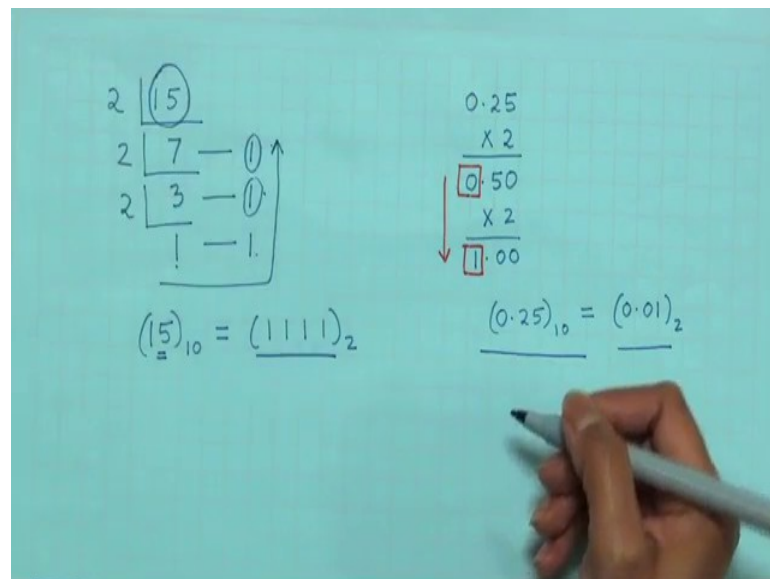 2 15
2 7 — 1
2 3 — 1
1 — 1
(15)₁₀ = (1111)₂
0.25
X 2
0.50
X 2
1.00
(0.25)₁₀ = (0.01)₂